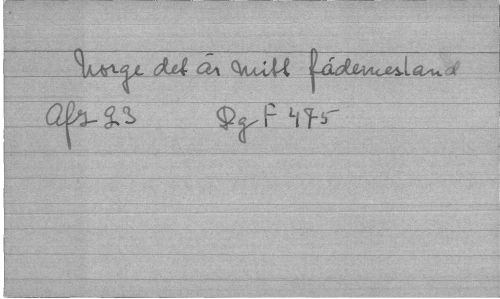 Norge det är mitt fädernesland
Afz 93 Dg F 475